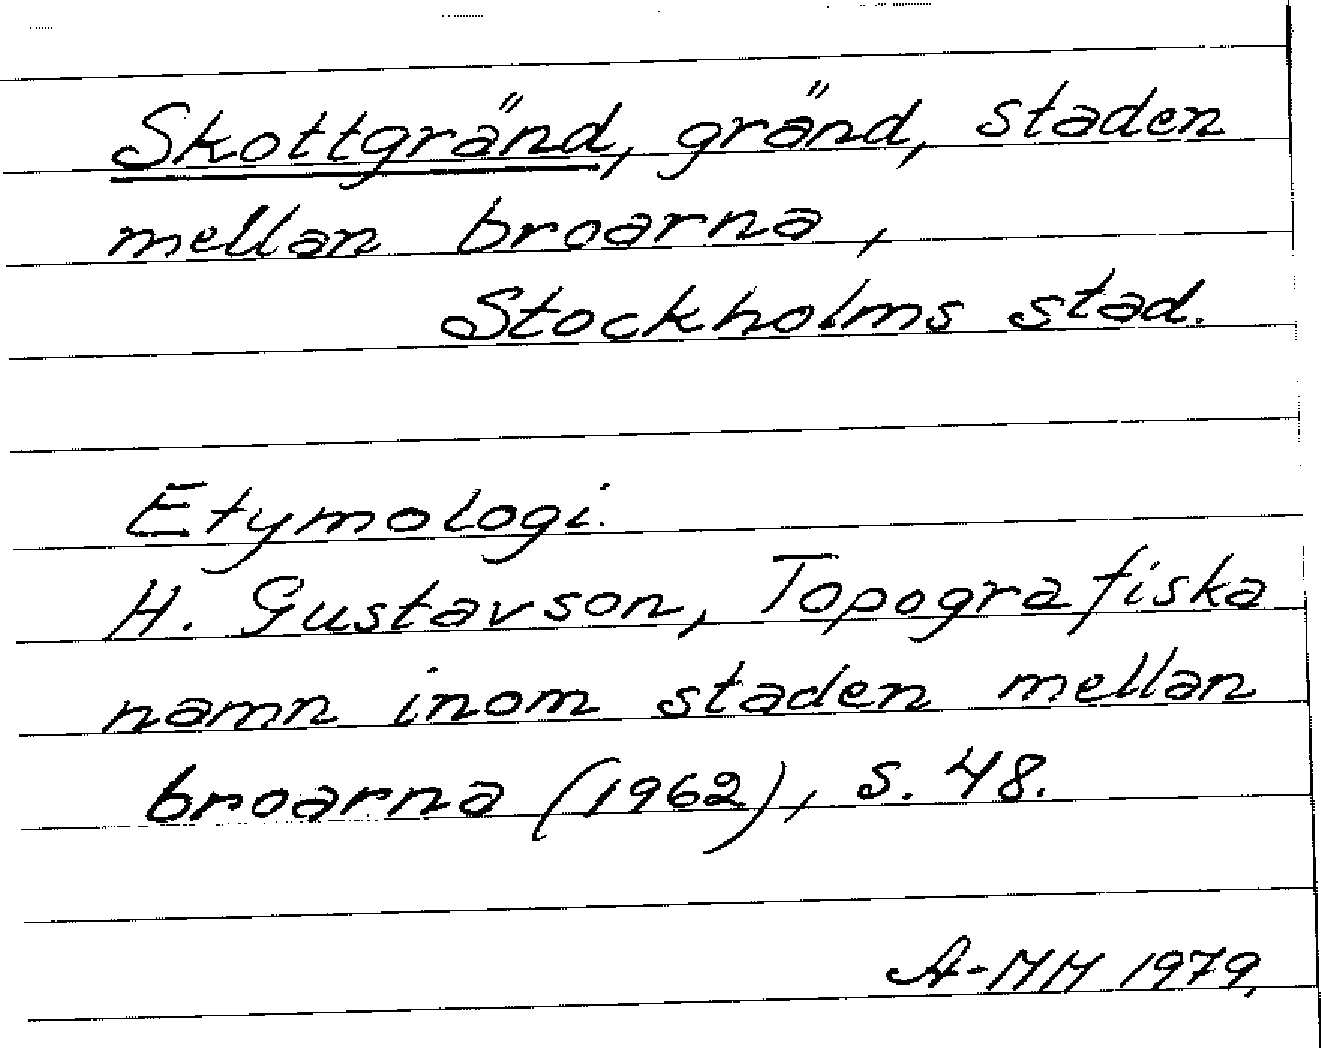 Skottgränd, gränd, staden
mellan broarna,
Stockholms stad.
Etymologi.
H. Gustavson, Topografiska
namn inom staden mellan
broarna (1962), s. 48.
A-MH 1979,